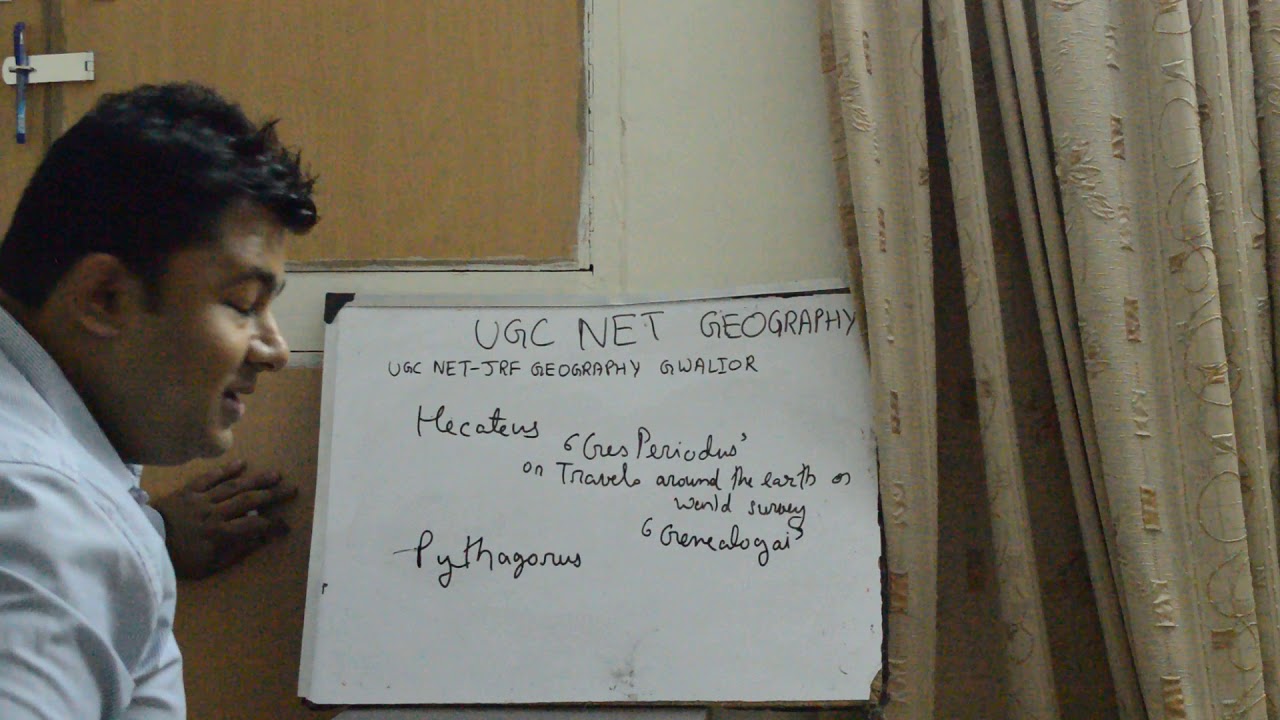 UGC NET GEOGRAPHY
UGC NET-JRF GEOGRAPHY GWALIOR
Hecateus
'Ges Periodus'
or Travels around the earth or
world survey
'Genealogai'
Pythagorus